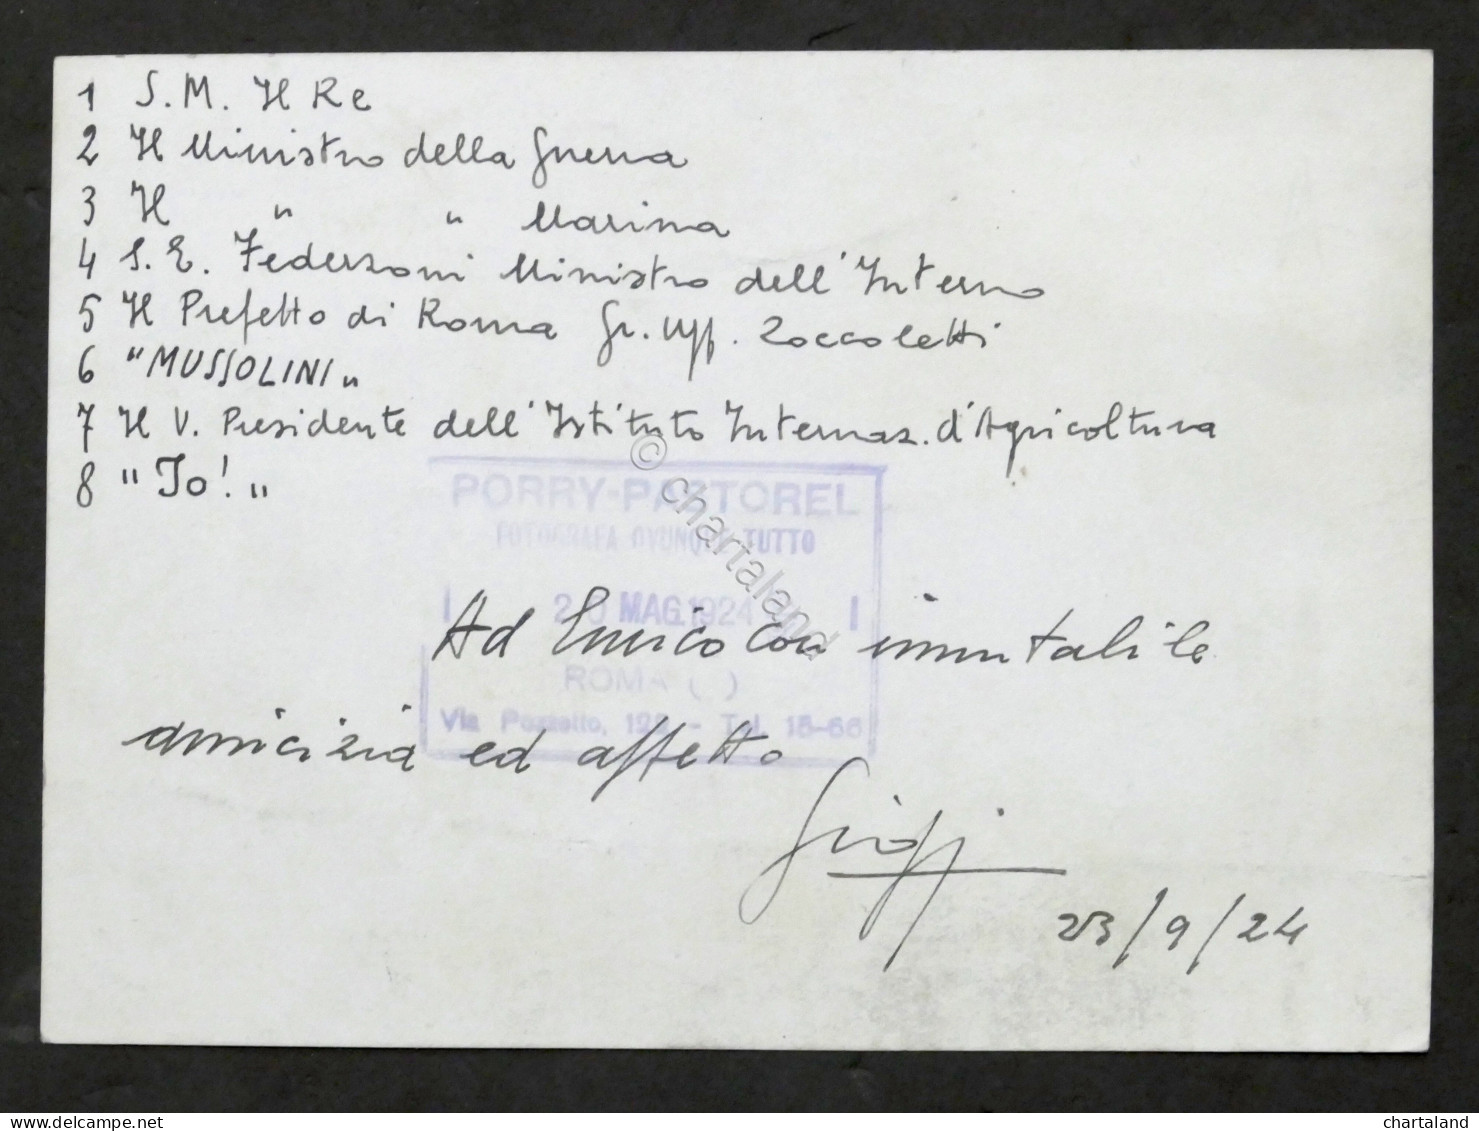 1 S. M. Il Re
2 Il Ministro della Guerra
3 Il " " Marina
4 S. E. Federzoni Ministro dell'Interno
5 Il Prefetto di Roma Gr. Uff. Zoccoletti
6 "MUSSOLINI"
7 Il V. Presidente dell'Istituto Internaz. d'Agricoltura
8 "Io!"
PORRY-PASTOREL
FOTOGRAFA OVUNQUE TUTTO
MAG. 1924
ROMA ( )
Via Pozzetto, - Tel. 15-66
Ad Enrico con immutabile
amicizia ed affetto
23/9/24
© chartaland
delcampe.net
chartaland